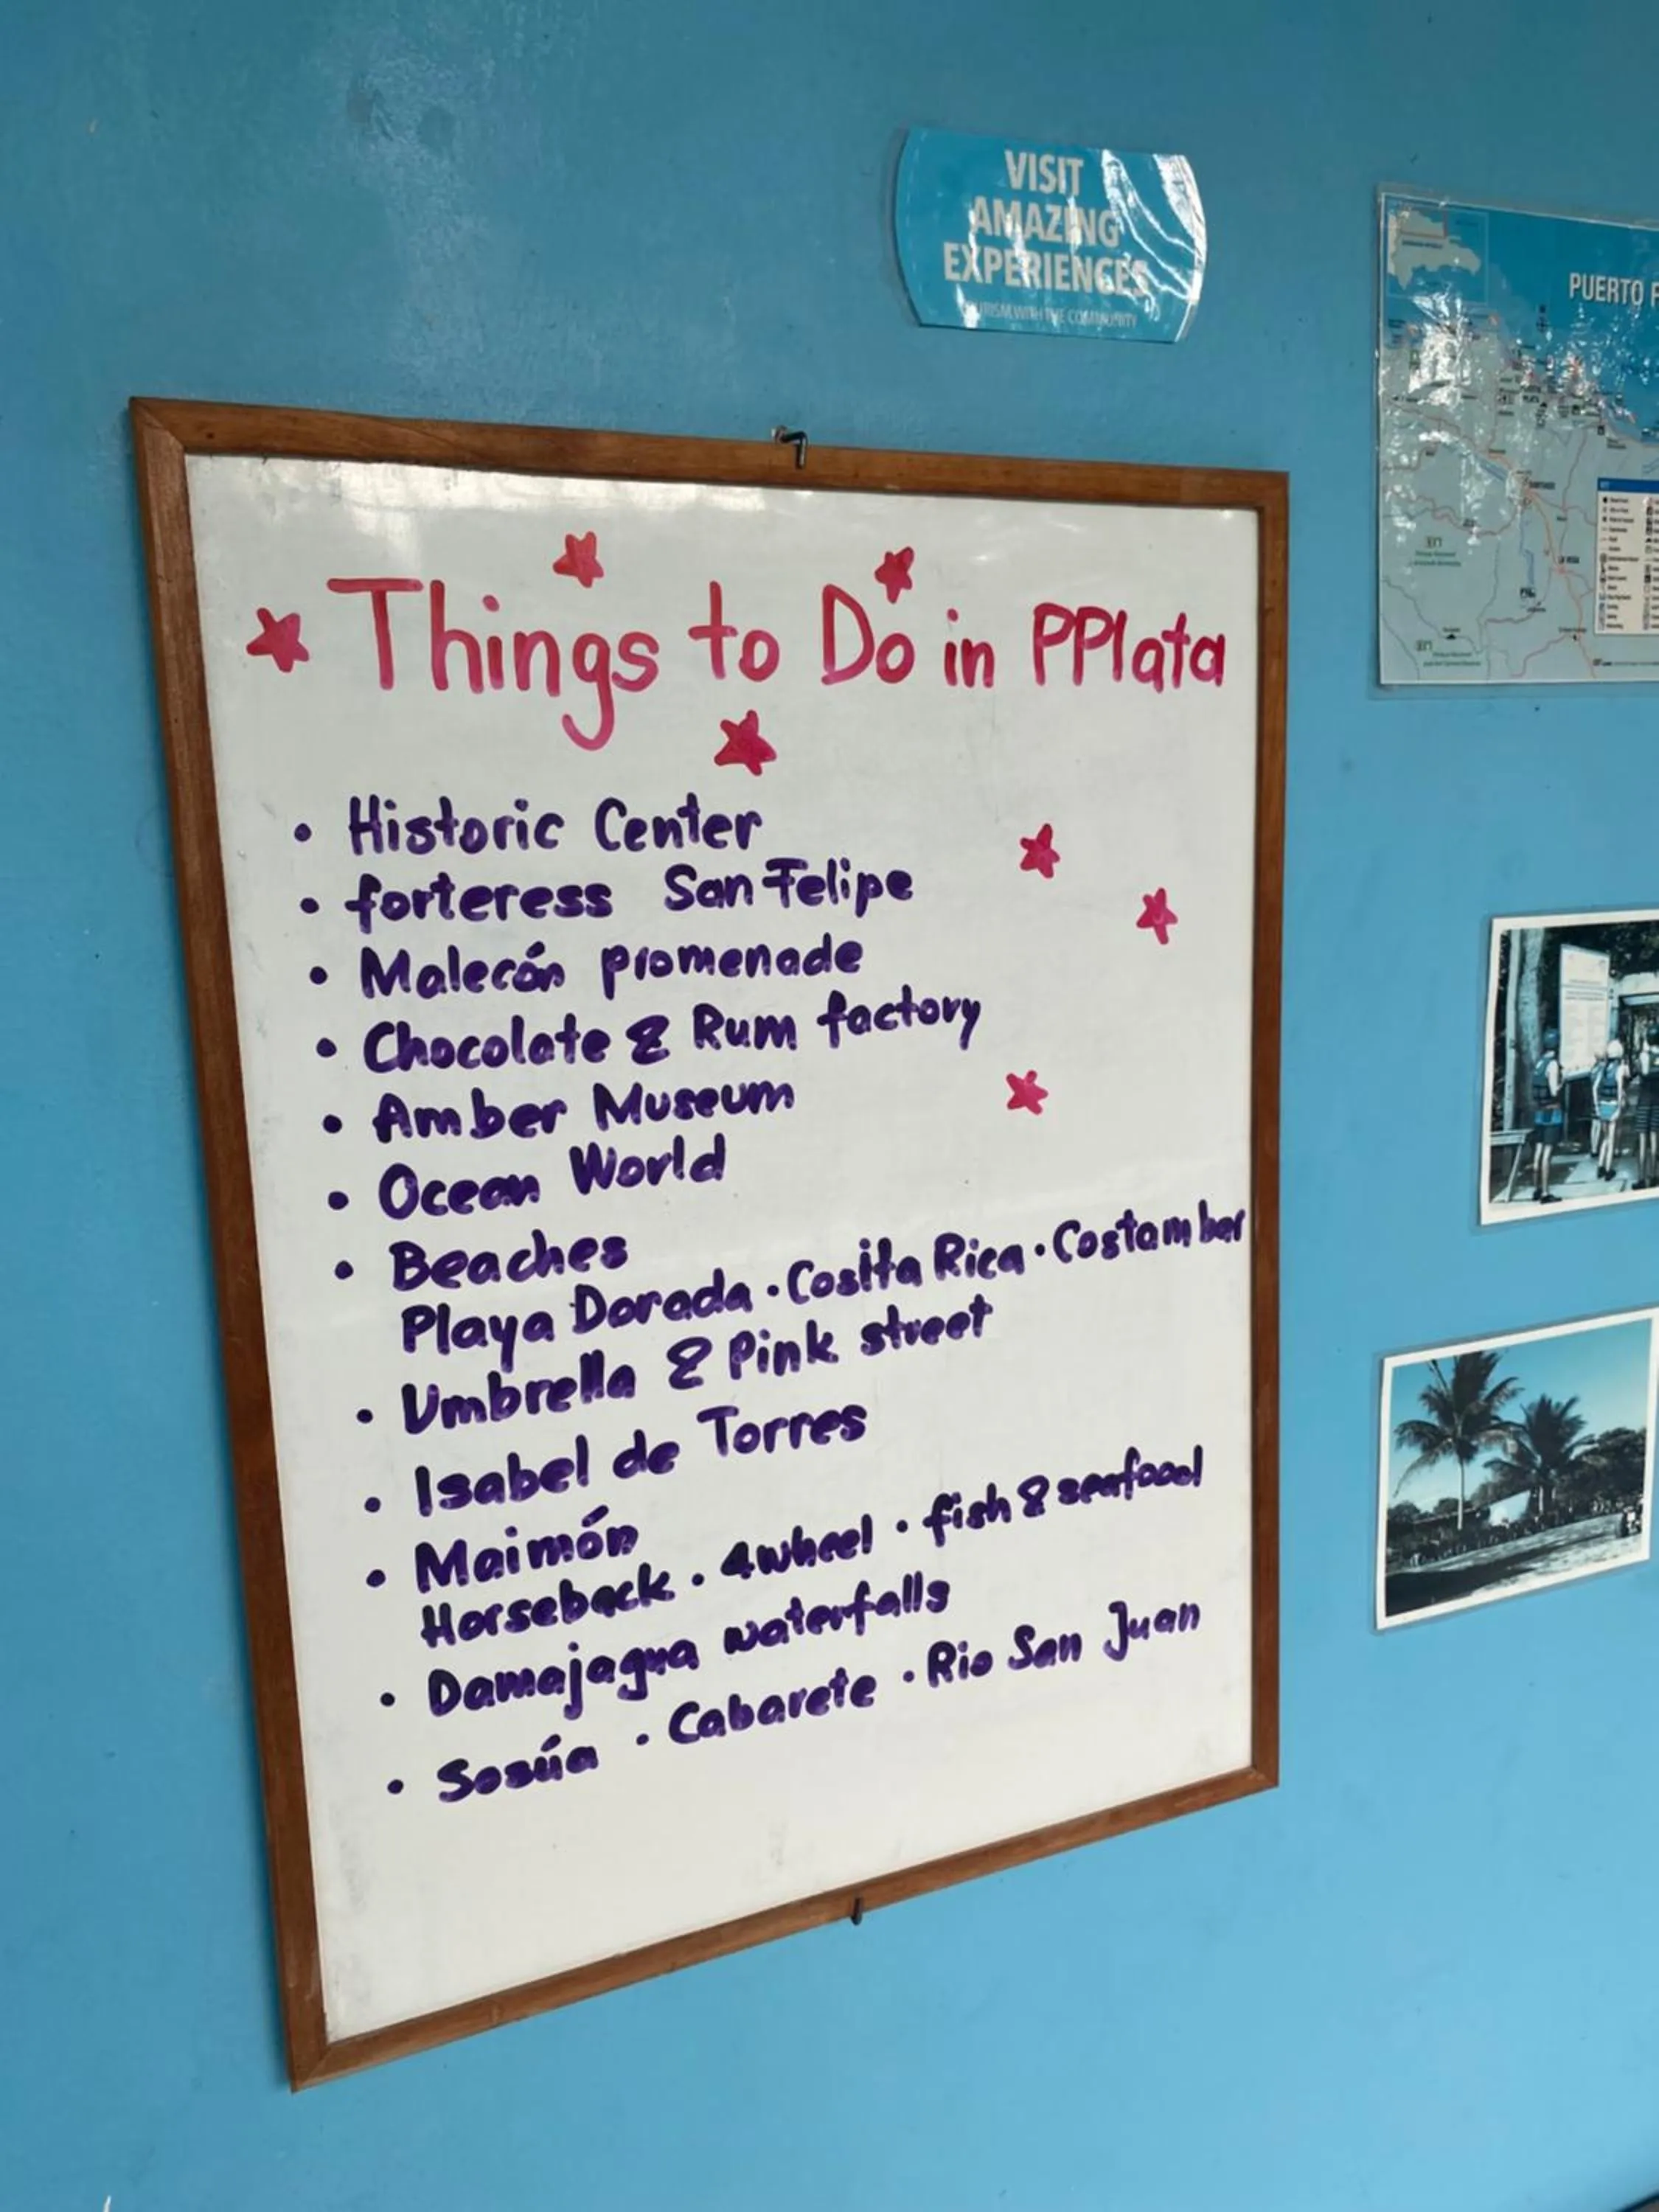 VISIT
AMAZING
EXPERIENCES
TOURISM WITH THE COMMUNITY
PUERTO
Things to Do in PPlata
• Historic Center
• forteress San Felipe
• Malecón promenade
• Chocolate & Rum factory
• Amber Museum
• Ocean World
• Beaches
Playa Dorada • Cosita Rica • Costambar
• Umbrella & Pink street
• Isabel de Torres
• Maimón
Horseback • 4wheel • fish & seafood
• Damajagua waterfalls
• Sosúa • Cabarete • Rio San Juan